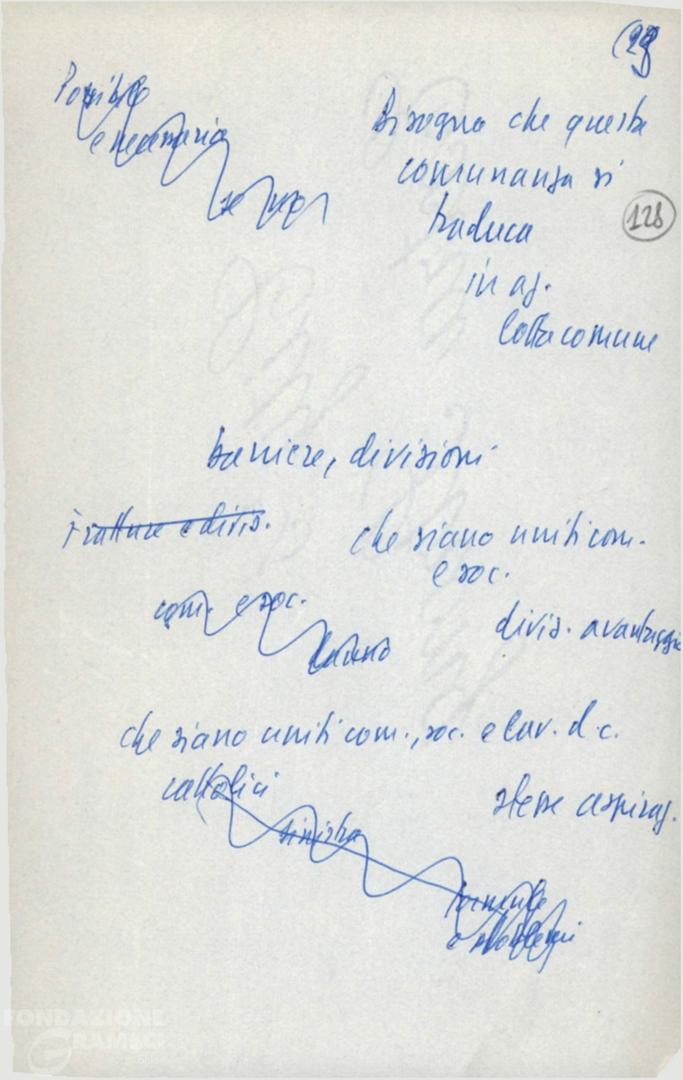 (28
Possibile
e necessaria
Bisogna che questa
comunanza si
128
traduca
in az.
lotta comune
barriere, divisioni
Fratture e divis.
che siano uniti com.
e soc.
com. e soc.
divis. avantaggia
che siano uniti com., soc. e lav. d.c.
cattolici
stesse aspiraz.
sinistra
formule
e problemi
FONDAZIONE
GRAMSCI